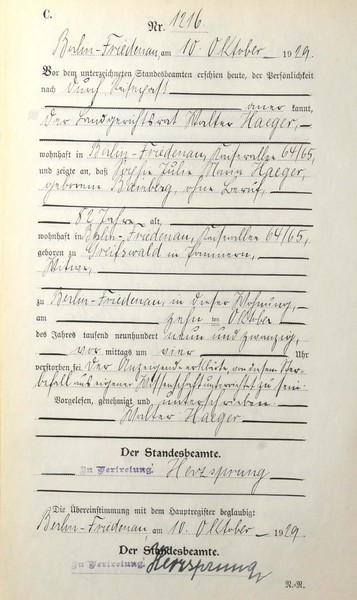 C.
Nr. 1216.
Berlin-Friedenau, am 10. Oktober 1929.
Vor dem unterzeichneten Standesbeamten erschien heute, der Persönlichkeit
nach durch
aner kannt,
der Landgerichtsrat Walter Haeger,
wohnhaft in Berlin-Friedenau, Kaiserallee 64/65,
und zeigte an, daß Sophie Julie Maria Haeger,
geborene Bamberg, ohne Beruf,
82 Jahre alt,
wohnhaft in Berlin-Friedenau, Kaiserallee 64/65,
geboren zu Greifswald in Pommern,
Witwe,
zu Berlin-Friedenau, in dieser Wohnung,
am zehnten Oktober
des Jahres tausend neunhundert neun und zwanzig,
vor mittags um vier Uhr
verstorben sei. Der Anzeigende erklärte, von diesem Ster-
befall aus eigener Wissenschaft unterrichtet zu sein.
Vorgelesen, genehmigt und unterschrieben
Walter Haeger.
Der Standesbeamte.
In Vertretung. Herzsprung
Die Übereinstimmung mit dem Hauptregister beglaubigt
Berlin-Friedenau, am 10. Oktober 1929.
Der Standesbeamte.
In Vertretung. Herzsprung
N.-R.